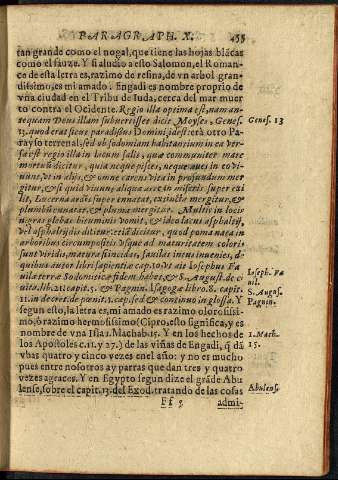 PARAGRAPH. X. 455
tan grande como el nogal, que tiene las hojas blãcas
como el sauze. Y si aludio a esto Salomon, el Roman-
ce de esta letra es, razimo de resina, de vn arbol gran-
dissimo, es mi amado. Engadi es nombre proprio de
vna ciudad en el Tribu de Iuda, cerca del mar muer
to contra el Ocidente. Regio illa optima est, nam an-
tequam Deus illam subuertisset dicit Moyses, Genes.
Genes. 13
13. quod erat sicut paradisus Domini, idest: erà otro Pa-
rayso terrenal, sed ob sodomiam habitantium in ea ver-
sa est regio illa in locum salis, qua communiter mare
mortuũ dicitur, quia neque pisces, neque aues in eo vi-
uunt, vt in alijs, & omne carens vita in profundum mer
gitur, & si quid viuum, aliqua arte immissis super exi
lit, Lucerna ardẽs super ennatat, extincta mergitur, &
plumbũ enatat, & pluma mergitur. Multis in locis
nigras glebas biruminis vomit, & ideo lacus asphalti,
vel asphaltijdis dititur: etiã dicitur, quod poma nata in
arboribus circumpositis vsque ad maturitatem coloris
sunt viridis, matura si incidas, fauillas intus inuenies, de
quibus autor libri sapientia cap. 10. vt ait Iosephus Fa
Ioseph. Fa
uila terra Sodomitica fidem habet, & S. August. de ci
uil.
S. Augus.
uita lib. 21. capit. 5. & Pagnin. Isagoga libro. 8. capit.
Pagnin.
11. in decret. de punit. 1. cap. sed & continuo in glossa. Y
segun esto, la letra es, mi amado es razimo olorosissi-
mo, ò razimo hermosissimo (Cipro, esto significa, y es
nombre de vna Isla 1. Machab. 15. Y en los hechos de
1. Mach.
los Apostoles c. 11. y 27.) de las viñas de Engadi, q̃ dã
15.
vbas quatro y cinco vezes en el año: y no es mucho
pues entre nosotros ay parras que dan tres y quatro
vezes agraces. Y en Egypto segun dize el grãde Abu
lense, sobre el capit. 13. del Exod. tratando de las cosas
Abulens.
Ff 5 admi-